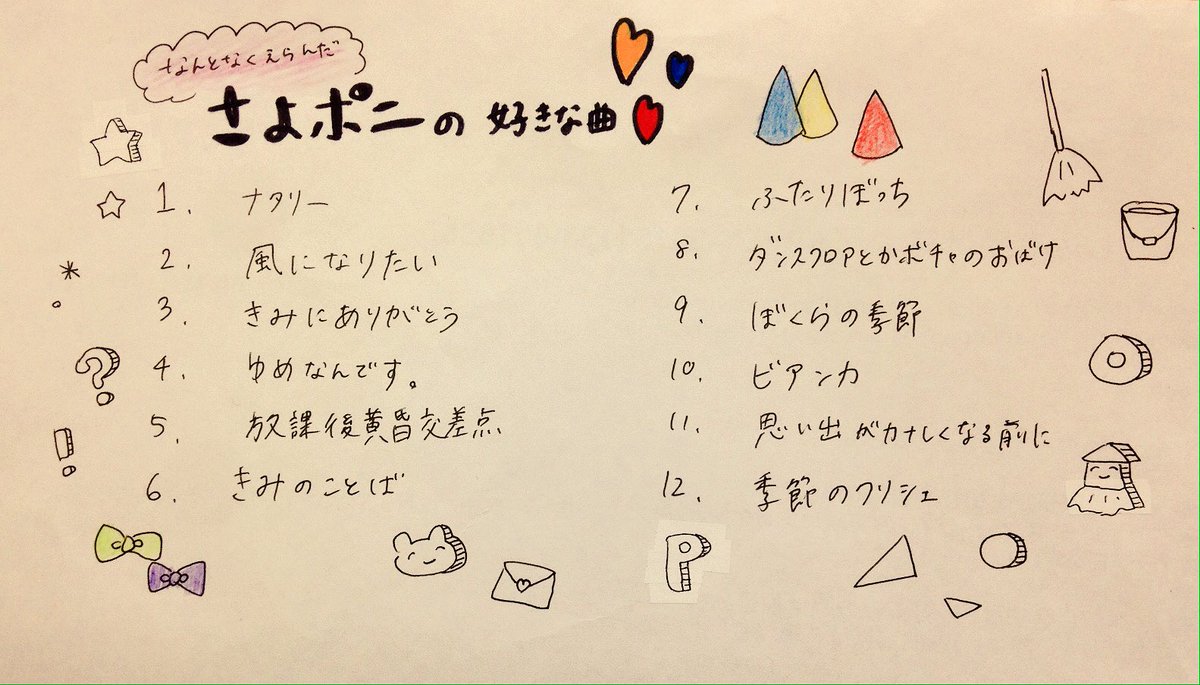 なんとなくえらんだ
さよポニの好きな曲
1. ナタリー
2. 風になりたい
3. きみにありがとう
4. ゆめなんです。
5. 放課後黄昏交差点
6. きみのことば
7. ふたりぼっち
8. ダンスフロアとかボチャのおばけ
9. ぼくらの季節
10. ビアンカ
11. 思い出がカナしくなる前に
12. 季節のクリシェ
?
!
P